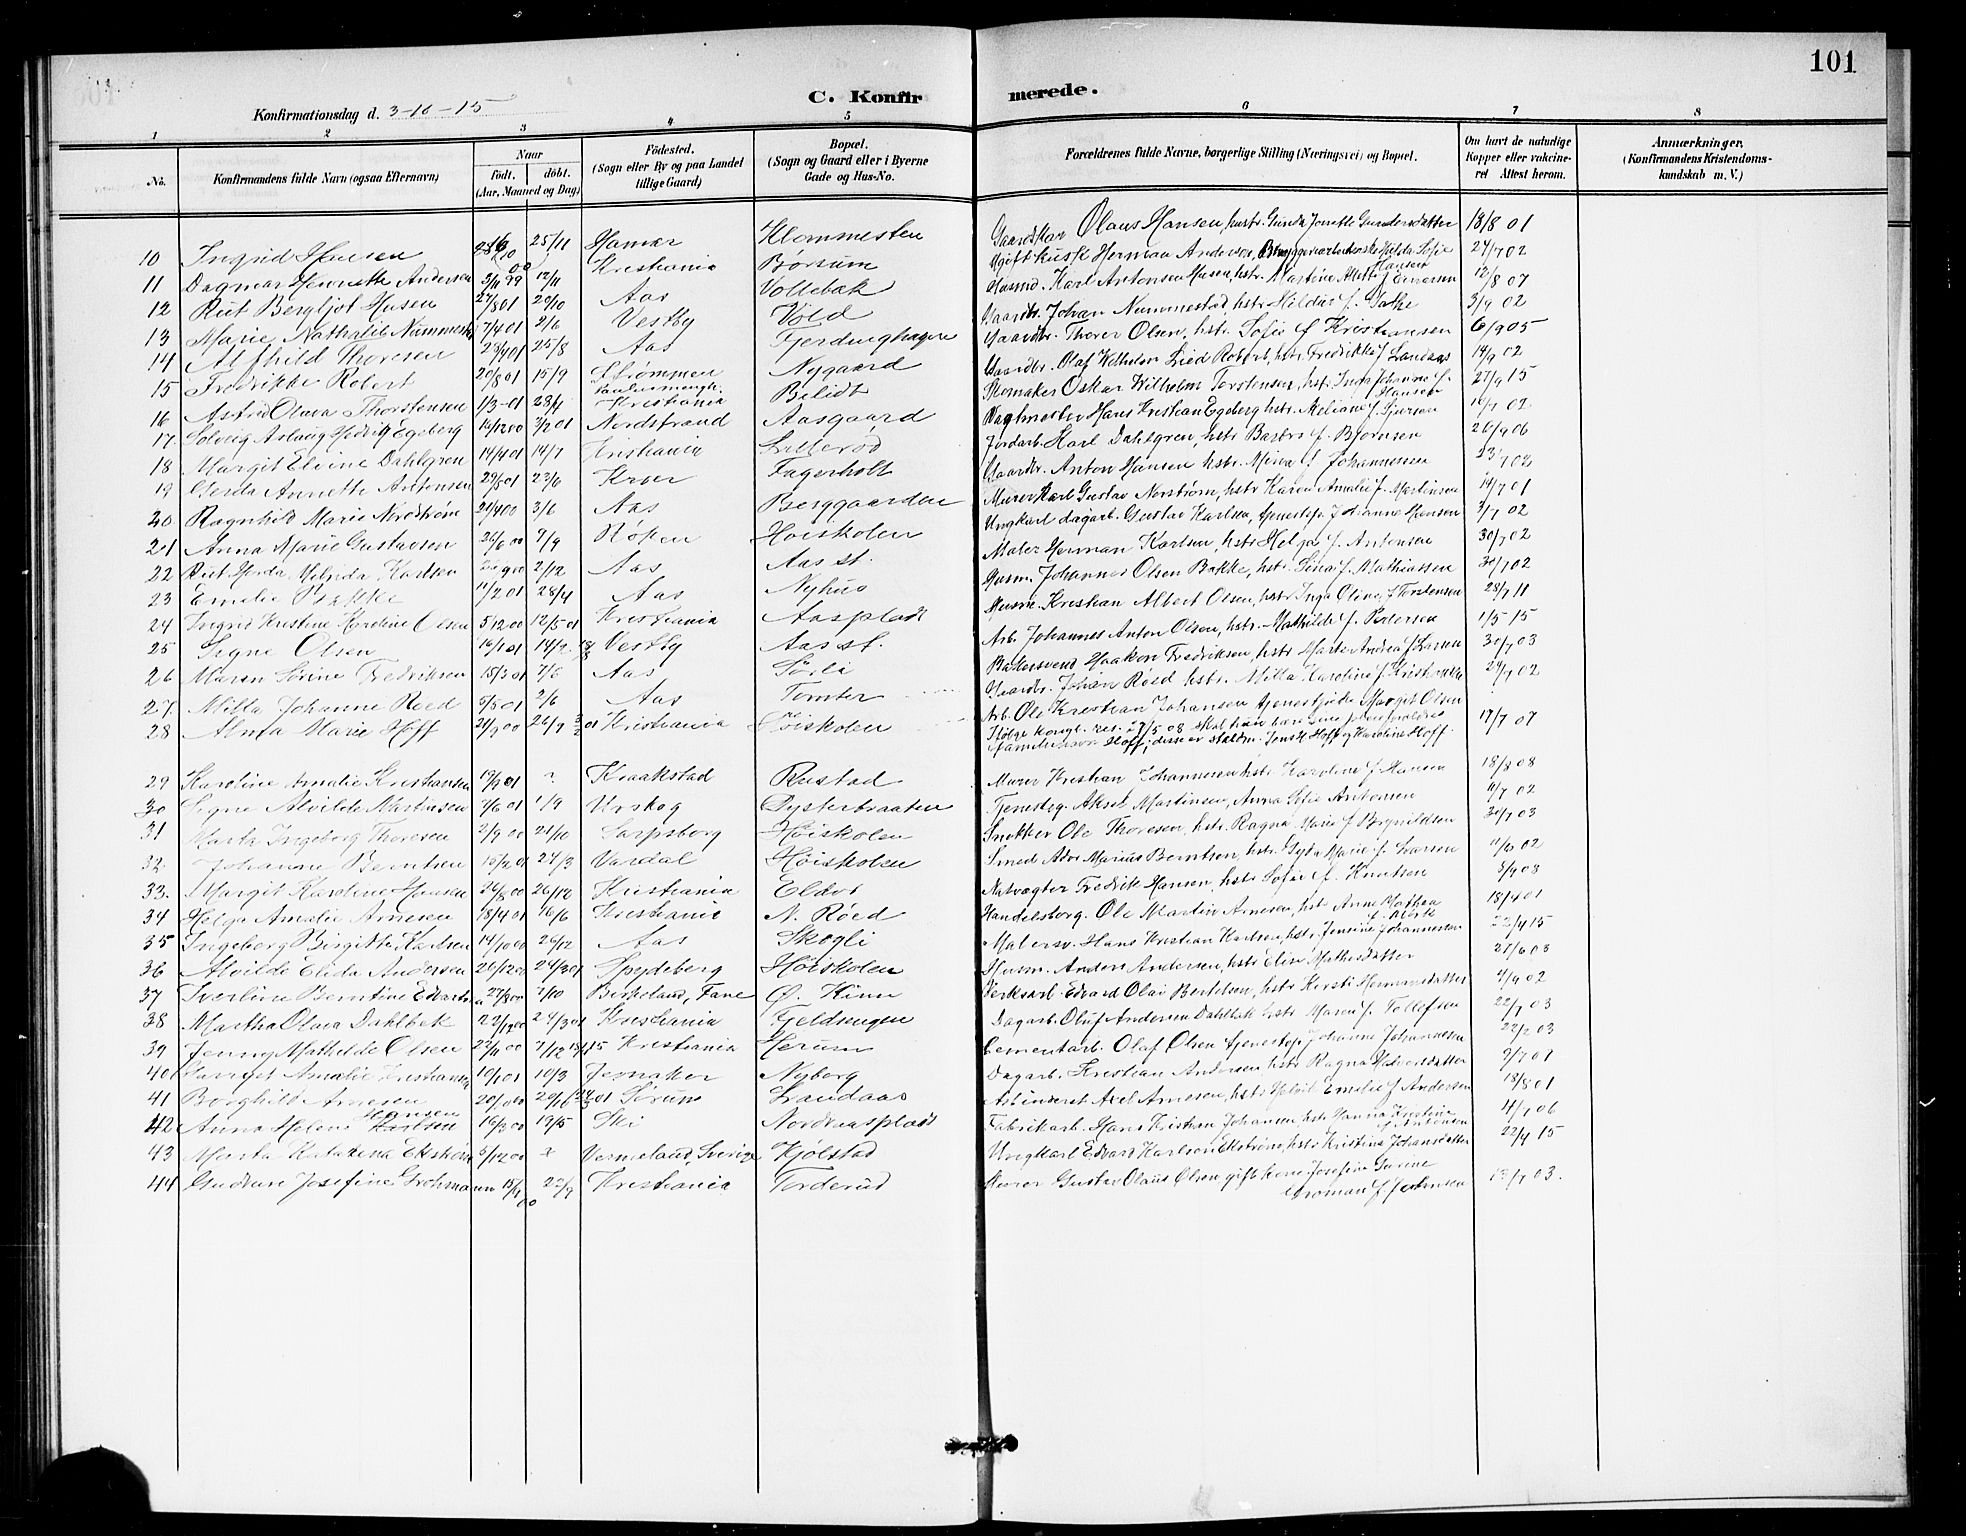 101
C. Konfir merede.
Konfirmationsdag d. 3-10-15
1 2 3 4 5 6 7 8
No. Konfirmandens fulde Navn (ogsaa Efternavn) Naar født. døbt. (Aar, Maaned og Dag) Fødested. (Sogn eller By og paa Landet tillige Gaard) Bopæl. (Sogn og Gaard eller i Byerne Gade og Hus-No. Forældrenes fulde Navne, borgerlige Stilling (Næringsvei) og Bopæl. Om havt de naturlige Kopper eller vakcineret Attest herom. Anmærkninger, (Konfirmandens Kristendomskundskab m. V.)
10 Ingrid Hansen 25/11 Hamar Klommesten Olaus Hansen, hustr. Gunda Jonette Gundersdatter 18/8 01
11 Dagmar Henriette Andersen 3/11 99 12/11 Kristiania Børsum Herman Andersen, Hilda Sofie Hansen 27/7 02
12 Rut Bergljot Husen 27/8 01 20/10 Aas Vollebæk Husmd. Karl Antonsen Husen, hstr. Martine Alette f. Einersen 12/8 07
13 Marie Nathalie Nummestad 7/4 01 2/6 Vestby Vold Gaardbr. Johan Nummestad, hstr. Hilda f. Bakke 3/9 02
14 Alfhild Thoresen 28/4 01 25/8 Aas Fjerdinghagen Gaardbr. Thorer Olsen, hstr. Sofie f. Kristiansen 6/9 05
15 Fredrikke Robert 20/8 01 15/9 Nygaard Gaardbr. Olaf Wilhelm Robert, hstr. Fredrikke f. Landaas 14/9 02
16 Astrid Olava Thorstensen 1/3-01 28/4 Kristiania Bilidt Skomaker Oskar Wilhelm Torstensen, hstr. Inga Johanne f. Hansen 27/9 15
17 Solveig Aslaug Hedvig Egeberg 14/12 00 3/2 01 Nordstrand Aasgaard Vagtmester Hans Kristian Egeberg hstr. Meliane f. Sjursen 16/7 02
18 Margit Elvine Dahlgren 14/4 01 14/7 Kristiania Sletterød Jordarb. Karl Dahlgren, hstr. Barbra f. Bjørnsen 26/9 06
19 Gerda Annette Antonsen 23/6 Kroer Fagerholt Gaardbr. Anton Hansen hstr. Mina f. Johannessen 23/7 02
20 Ragnhild Marie Nordstrøm 21/4 00 3/6 Aas Berggaarden Murer Karl Gustav Nordstrøm, hstr. Karen Amalie f. Martinsen 14/7 01
21 Anna Marie Gustavsen 26/6 00 7/9 Røken Høiskolen Ungkarl dagarb. Gustav Karlsen, tjenestep. Johanne Hansen 3/7 02
22 Rut Herda Milrida Karlsen 2/12 Aas Aas st. Maler Herman Karlsen, hstr. Helga f. Antonsen 30/7 02
23 Emilie Bakke 11/2 01 28/4 Aas Nyhus Husm. Johannes Olsen Bakke, hstr. Lina f. Mathiassen 30/7 02
24 Ingrid Kristine Karoline Olsen 5/12 00 12/5 01 Kristiania Aasplads Husm. Kristian Albert Olsen, hstr. Inga Oline f. Torstensen 28/7 11
25 Signe Olsen 16/1 01 14/2 Vestby Aas st. Arb. Johannes Anton Olsen, hstr. Mathilde f. Pedersen 1/5 15
26 Maren Sørine Fredriksen 15/3 01 7/6 Aas Sørli Bakersvend Haakon Fredriksen, hstr. Marte Andrea f. Larsen 30/7 03
27 Milla Johanne Røed 5/5 01 2/6 Aas Tomter Gaardbr. Johan Røed hstr. Milla Karoline f. Kristensen 24/7 02
28 Alma Marie Hoff 21/9 00 26/9 Kristiania Høiskolen Arb. Ole Kristian Johansen tjenestepike Margit Olsen
Ifølge kongl. res. 27/5 08 skal hun bære sine pleieforældres familienavn Hoff; disse er staldm. Jens H. Hoff og Karoline Hoff. 17/7 07
29 Karoline Amalie Kristiansen 19/9 01 ? Kraakstad Rustad Murer Kristian Johannesen hstr. Karoline f. Hansen 18/8 08
30 Signe Alvilde Martinsen 7/6 01 1/9 Urskog Dysterbraaten Tjenesteg. Aksel Martinsen, Anna Sofie Antonsen 11/7 02
31 Marta Ingeborg Thoresen 2/9 00 21/10 Sarpsborg Høiskolen Snekker Ole Thoresen, hstr. Ragna Marie f. Brynildsen 30/7 03
32. Johanne Berntsen 15/2 01 24/3 Vardal Høiskolen Smed Adov Marius Berntsen, hstr. Gyda Marie f. Larsen 11/6 02
33. Margit Karoline Hansen 24/8 00 26/12 Kristiania Eldor Natvægter Fredrik Hansen, hstr. Sofie f. Knutsen 3/9 08
34 Helga Amalie Arnesen 18/4 01 16/6 Kristiania N. Røed Handelsborg. Ole Martin Arnesen, hst. Anne Mathea 18/4 01
35 Ingeborg Birgitte Karlsen 14/10 00 26/12 Aas Skogli Malersv. Hans Kristian Karlsen, hstr. Jensine f. Johannessen 22/4 15
36 Alvilde Elida Andersen 26/12 00 24/3 01 Spydeberg Høiskolen Husm. Anders Andersen, hstr. Elise Mathisdatter 21/6 03
37 Sverline Berntine Edvards 27/8 00 7/10 Birkeland, Fane Ø. Kinn Verksarb. Edvard Olai Bertelsen, hstr. Kirsti Hermansdatter 4/9 02
38 Martha Olava Dahlbek 24/3 01 Kristiania Geldrengen Dagarb. Oluf Andersen Dahlbek hstr. Maren f. Tollefsen 22/7 03
39 Jenny Mathilde Olsen 22/11 00 7/12 Kristiania Herum Cementarb. Olaf Olsen tjenestep. Johanne Johannesen 22/2 03
40 Margit Amalie Kristiansen 10/1 01 10/3 Jevnaker Nyborg Dagarb. Kristian Andersen, hstr Ragna Halvorsdatter 2/7 01
41 Borghild Arnesen Sørum Landaas Axel Arnesen, hstr. Emilie f. Andersen 18/8 01
42 Anna Helene Hansen Karlsen 16/3 00 19/5 Ski Nordaasplads Fabrikarb. Hans Kristian Johansen, hstr. Hanna Kristine f. Antonsen 4/7 06
43 Marta Katarina Ekstrøm 5/12 00 ? Vermeland, Sverige Kjølstad Ungkarl Edvard Karlsen Ekstrøm, hstr. Kristine Johansdatter 22/4 15
44 Gudrun Josefine Grohmann 15/9 00 22/9 Kristiania Torderud Murer Gustav Olaus Olsen gift kone Josefine Severine Groman f. Jensen 13/7 03.